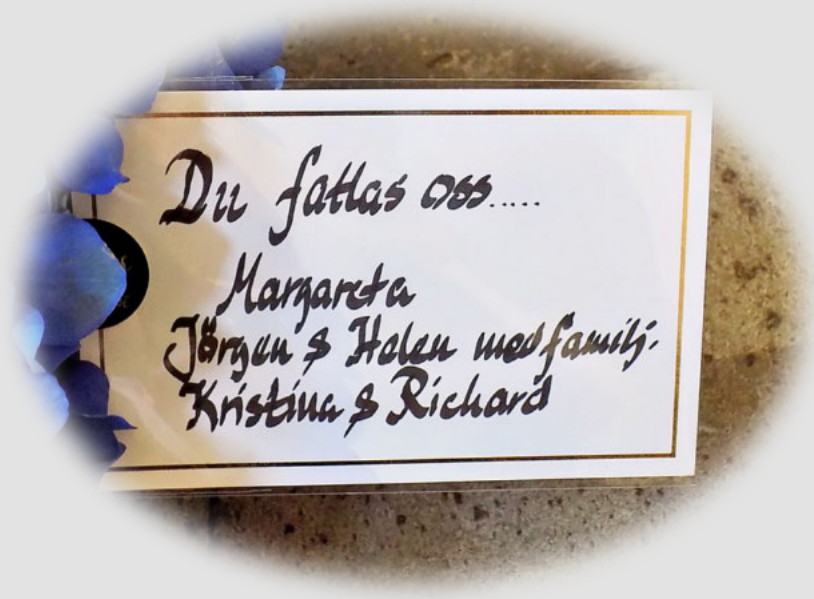 Du fattas oss.....
Margareta
Jörgen & Helen med familj.
Kristina & Richard